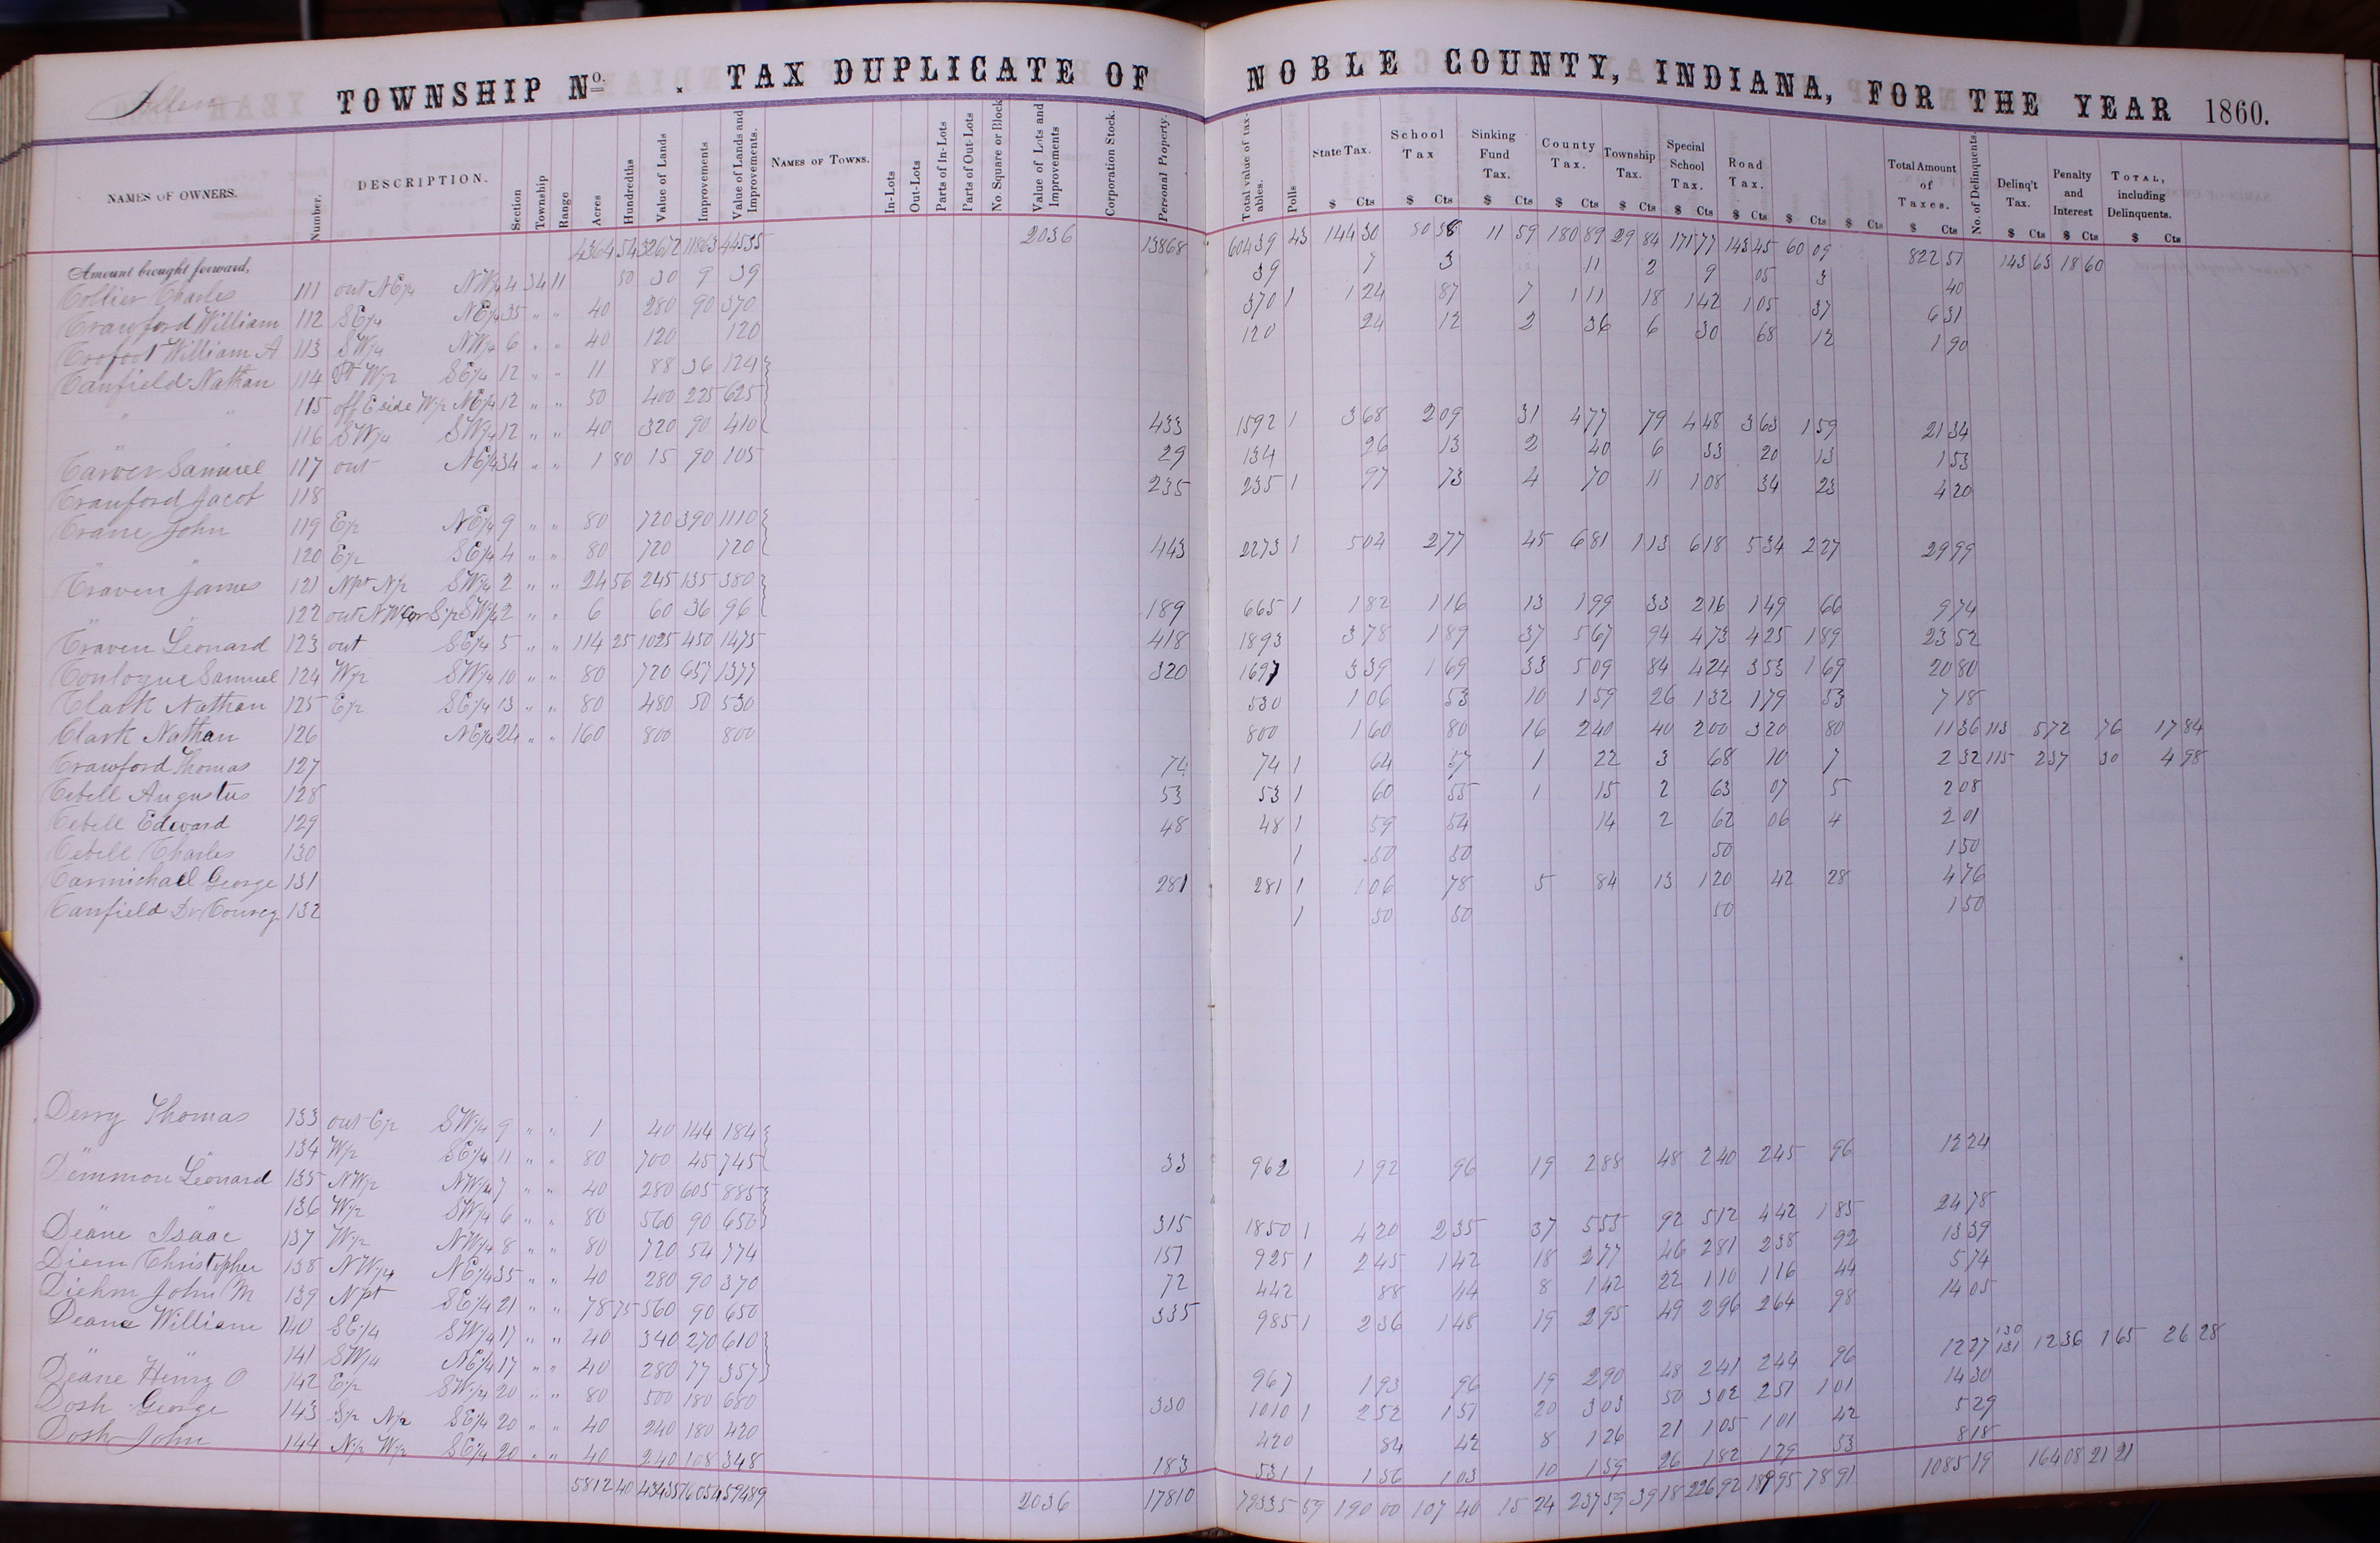 Allen TOWNSHIP No. . TAX DUPLICATE OF NOBLE COUNTY, INDIANA, FOR THE YEAR 1860.
NAMES OF OWNERS. Number. DESCRIPTION. Section Township Range Acres Hundredths Value of Lands Improvements Value of Lands and Improvements. NAMES OF TOWNS. In-Lots Out-Lots Parts of In-Lots Parts of Out-Lots No. Square or Block Value of Lots and Improvements Corporation Stock. Personal Property. Total value of taxables. Polls State Tax. School Tax Sinking Fund Tax. County Tax. Township Tax. Special School Tax. Road Tax. Total Amount of Taxes. No. of Delinquents. Delinq't Tax. Penalty and Interest TOTAL, including Delinquents.
$ Cts $ Cts $ Cts $ Cts $ Cts $ Cts $ Cts $ Cts $ Cts $ Cts $ Cts $ Cts $ Cts
Amount brought forward, 4364 54 32672 11863 44535 2036 13868 60439 43 144 30 80 58 11 59 180 89 29 84 171 77 143 45 60 09 822 51 143 63 18 60
Collier Charles 111 out NE/4 NW/4 4 34 11 50 30 9 39 39 7 3 11 2 9 05 3 40
Crawford William 112 SE/4 NE/4 35 " " 40 280 90 370 370 1 1 24 87 7 1 11 18 1 42 1 05 37 6 31
Crofoot William A 113 SW/4 NW/4 6 " " 40 120 120 120 24 12 2 36 6 30 68 12 1 90
Canfield Nathan 114 Pt W/2 SE/4 12 " " 11 88 36 124
" " 115 off E side W/2 NE/4 12 " " 50 400 225 625
" " 116 SW/4 SW/4 12 " " 40 320 90 410 433 1592 1 3 68 2 09 31 4 77 79 4 48 3 63 1 59 21 34
Carver Samuel 117 out NE/4 34 " " 1 80 15 90 105 29 134 26 13 2 40 6 33 20 13 1 53
Crawford Jacob 118 235 235 1 97 73 4 70 11 1 08 34 23 4 20
Crane John 119 E/2 NE/4 9 " " 80 720 390 1110
" 120 E/2 SE/4 4 " " 80 720 720 443 2273 1 5 04 2 77 45 6 81 1 13 6 18 5 34 2 27 29 99
Craven James 121 Npt N/2 SW/4 2 " " 24 56 245 135 380
" 122 out NW Cor S/2 SW/4 2 " " 6 60 36 96 189 665 1 1 82 1 16 13 1 99 33 2 16 1 49 66 9 74
Craven Leonard 123 out SE/4 5 " " 114 25 1025 450 1475 418 1893 3 78 1 89 37 5 67 94 4 73 4 25 1 89 23 52
Conlogue Samuel 124 W/2 SW/4 10 " " 80 720 657 1377 320 1697 3 39 1 69 33 5 09 84 4 24 3 53 1 69 20 80
Clark Nathan 125 E/2 SE/4 13 " " 80 480 50 530 530 1 06 53 10 1 59 26 1 32 1 79 53 7 18
Clark Nathan 126 NE/4 24 " " 160 800 800 800 1 60 80 16 2 40 40 2 00 3 20 80 11 36 113 5 72 76 17 84
Crawford Thomas 127 74 74 1 64 57 1 22 3 68 10 7 2 32 115 2 37 30 4 98
Cebell Augustus 128 53 53 1 60 55 1 15 2 63 07 5 2 08
Cebell Edward 129 48 48 1 59 54 14 2 62 06 4 2 01
Cebell Charles 130 1 50 50 50 1 50
Carmichael George 131 281 281 1 1 06 78 5 84 13 1 20 42 28 4 76
Canfield De Courcy 132 1 50 50 50 1 50
Derry Thomas 133 out E/2 SW/4 9 " " 1 40 144 184
" 134 W/2 SE/4 11 " " 80 700 45 745 33 962 1 92 96 19 2 88 48 2 40 2 45 96 12 24
Demmon Leonard 135 NW/2 NW/4 7 " " 40 280 605 885
" " 136 W/2 SW/4 6 " " 80 560 90 650 315 1850 1 4 20 2 35 37 5 55 92 5 12 4 42 1 85 24 78
Deane Isaac 137 W/2 NW/4 8 " " 80 720 54 774 151 925 1 2 45 1 42 18 2 77 46 2 81 2 38 92 13 39
Diem Christopher 138 NW/4 NE/4 35 " " 40 280 90 370 72 442 88 44 8 1 42 22 1 10 1 16 44 5 74
Diehm John M 139 Npt SE/4 21 " " 78 75 560 90 650 335 985 1 2 36 1 48 19 2 95 49 2 96 2 64 98 14 05
Deane William 140 SE/4 SW/4 17 " " 40 340 270 610
" " 141 SW/4 NE/4 17 " " 40 280 77 357 967 1 93 96 19 2 90 48 2 41 2 44 96 12 27 130 131 12 36 1 65 26 28
Deane Henry O 142 E/2 SW/4 20 " " 80 500 180 680 330 1010 1 2 52 1 51 20 3 03 50 3 02 2 51 1 01 14 30
Dosh George 143 S/2 N/2 SE/4 20 " " 40 240 180 420 420 84 42 8 1 26 21 1 05 1 01 42 5 29
Dosh John 144 N/2 W/2 SE/4 20 " " 40 240 108 348 183 531 1 1 56 1 03 10 1 59 26 1 82 1 29 53 8 18
5812 40 43435 16054 59489 2036 17810 79335 59 190 00 107 40 15 24 237 59 39 18 226 92 189 95 78 91 1085 19 164 08 21 21